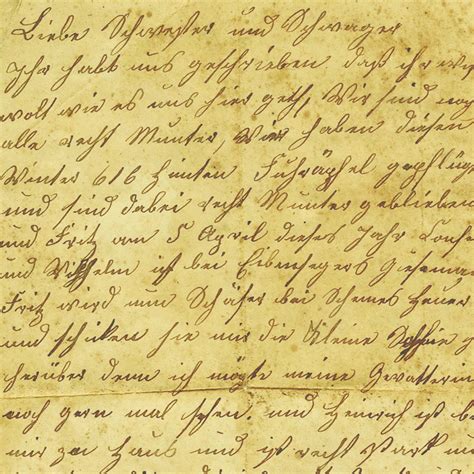 Liebe Schwester und Schwager
Ihr habt uns geschrieben daß ihr
wolt wie es uns hier geth, Wir sind
alle recht Munter, Wir haben diesen
Winter 616 Himten gepflüg
und sind dabei recht Munter geblieben
und Fritz am 5 April dieses Jahr Conf
und Wilhelm ist bei
Fritz wird nun Schäfer bei Heuer
und schicken sie mir die kleine Sophie
herüber denn ich mögte meine Gevatterin
noch gern mal sehen. und Heinrich ist
mir zu Haus und ist recht Stark